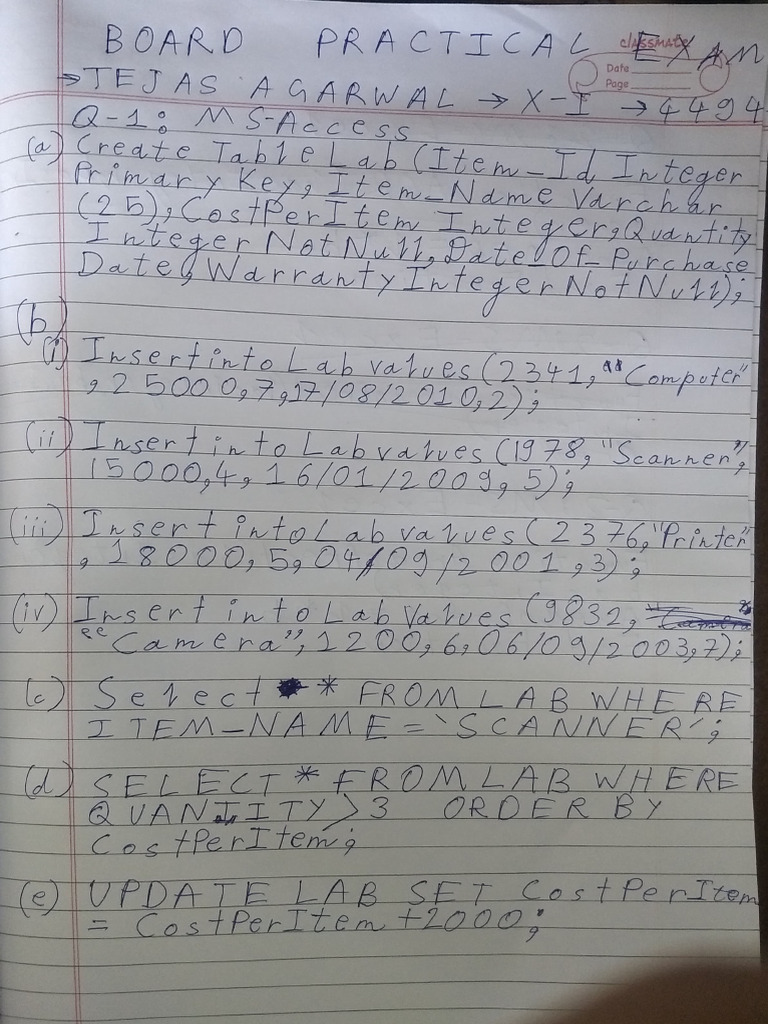 BOARD PRACTICAL EXAM
classmate
Date
Page
→TEJAS AGARWAL → X-I → 4494
Q-1: MS-Access
(a) Create Table Lab (Item-Id Integer
Primary Key, Item-Name Varchar
(25), CostPerItem Integer, Quantity
Integer Not Null, Date-Of-Purchase
Date, Warranty Integer Not Null);
(b)
(i) Insert into Lab values (2341, "Computer"
, 25000, 7, 17/08/2010, 2);
(ii) Insert into Lab values (1978, "Scanner",
15000, 4, 16/01/2009, 5);
(iii) Insert into Lab values (2376, "Printer"
, 18000, 5, 04/09/2001, 3);
(iv) Insert into Lab Values (9832,
"Camera", 1200, 6, 06/09/2003, 7);
(c) Select * FROM LAB WHERE
ITEM-NAME = 'SCANNER';
(d) SELECT * FROM LAB WHERE
QUANTITY > 3 ORDER BY
CostPerItem;
(e) UPDATE LAB SET CostPerItem
= CostPerItem +2000;